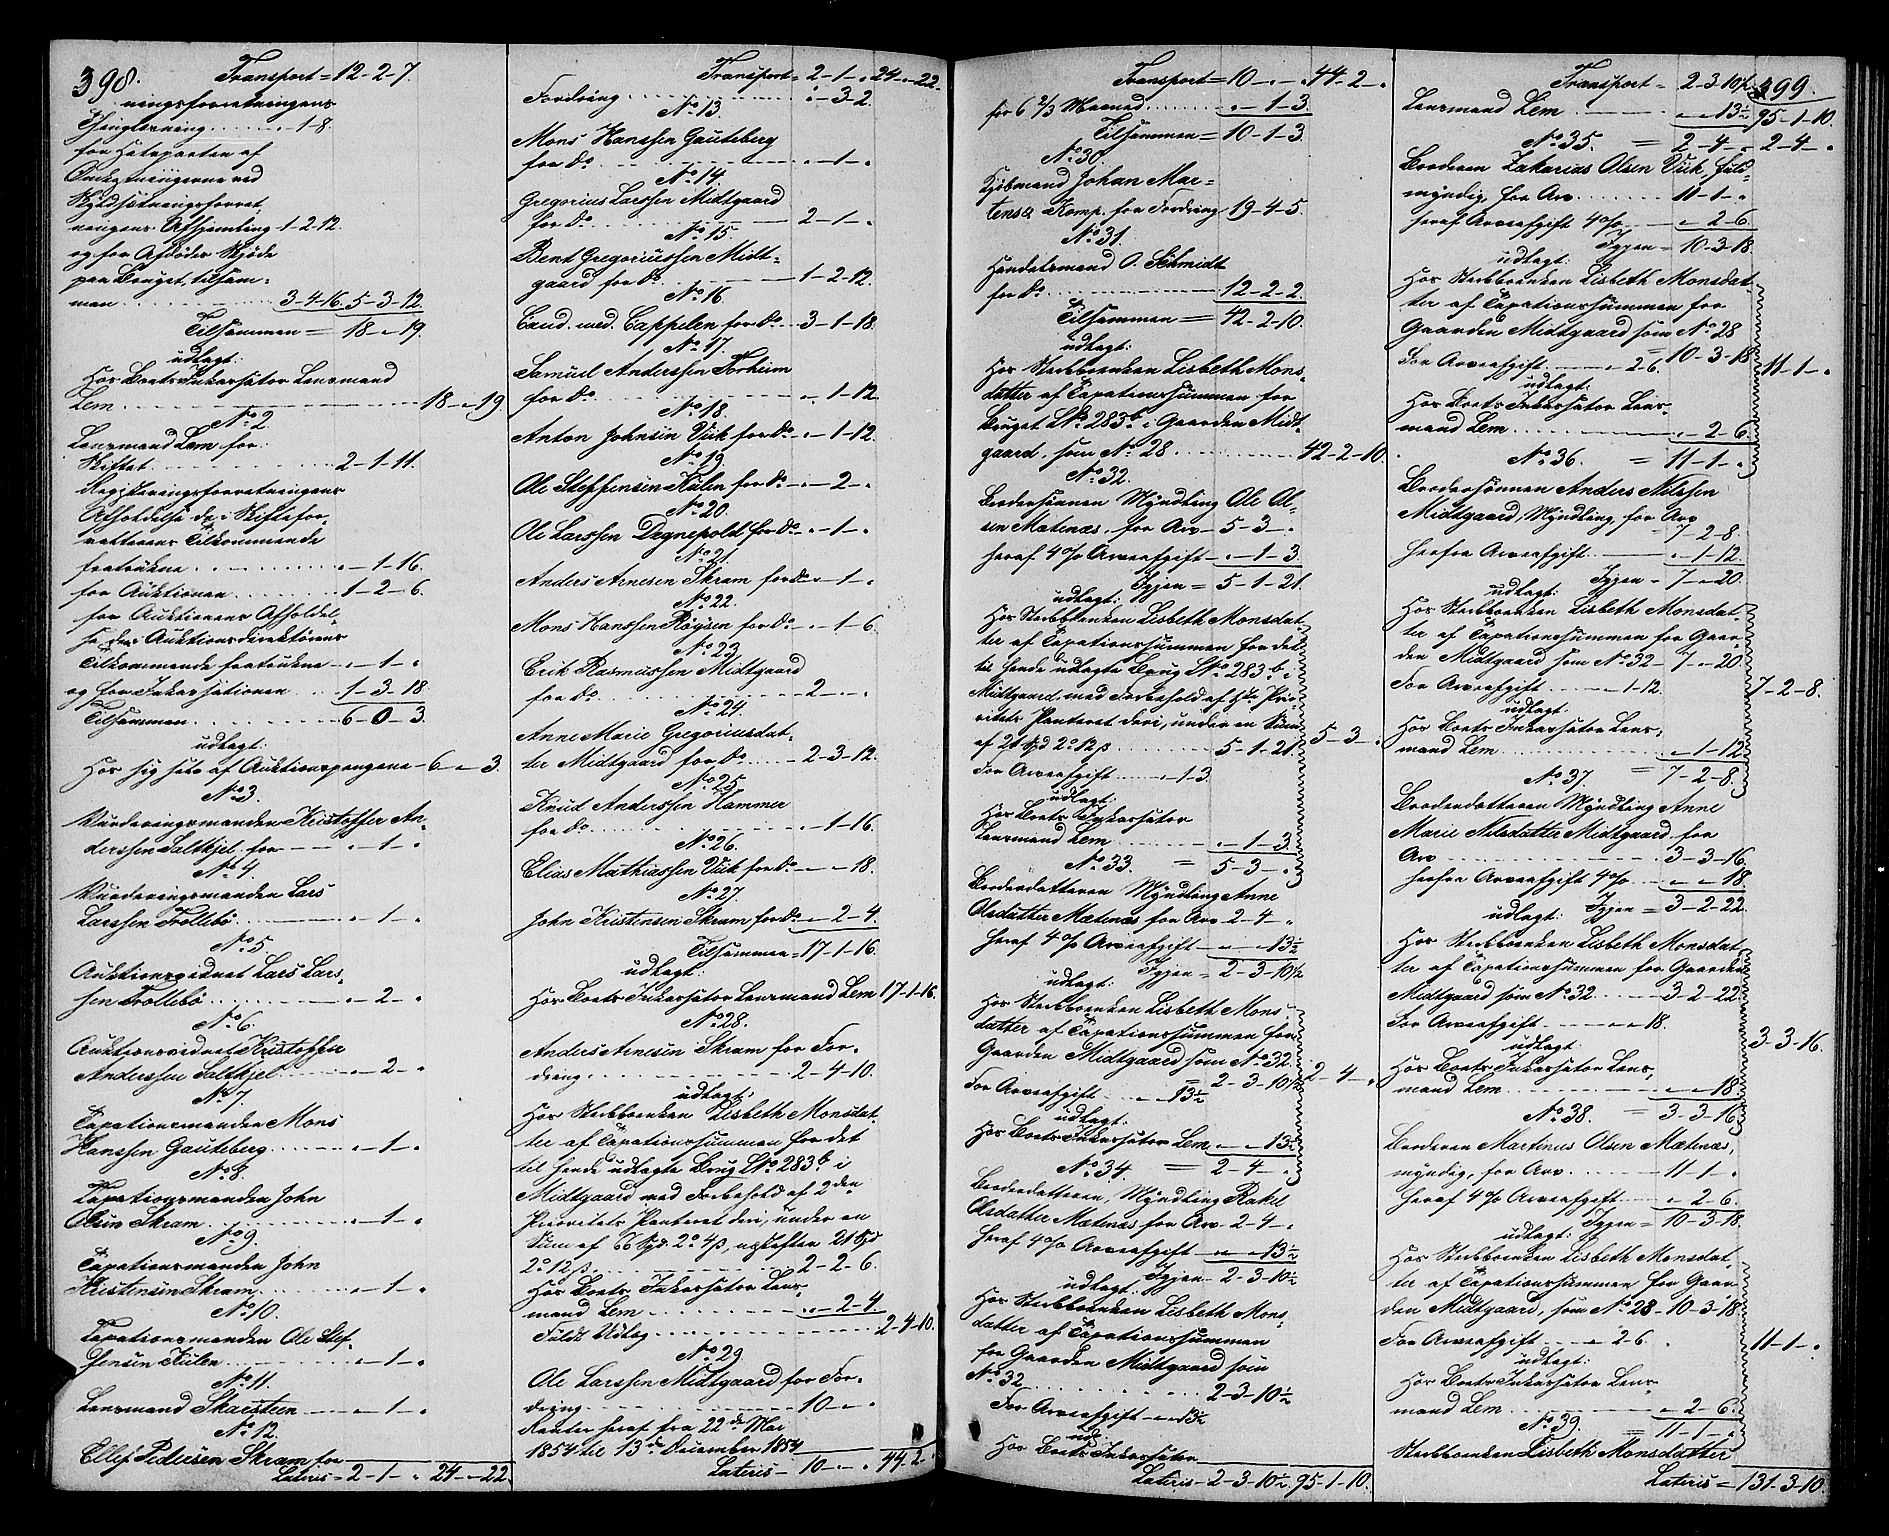 398.
Transport = 12-2-7.
ningsforretningens
Thinglæsning 1-8.
for Halvparten af
Omkostningerne ved
Skyldsætningsforret,
ningens Afhjemling 1-2-12.
og for Afdøde Skjøde
paa Bruget, tilsam-
men 3-4-16. 5-3-12.
Tilsammen = 18-"-19.
udlagt:
Hos Boets Inkassator Lensmand
Lem 18-"-19.
No. 2.
Lensmand Lem for
Skiftet 2-1-11.
Registreringsforretningens
Afholdelse
rettens Tilkommende
fratrukne "-1-16.
for Auktionen 1-2-6.
for Auktionens Afholdel-
se Auktionsdirektørens
Tilkommende fratrukne "-1-"
og for Inkassationen 1-3-18.
Tilsammen 6-0-3.
udlagt:
Hos sig selv af Auktionspengene 6-"-3.
No. 3.
Vurderingsmanden Kristoffer An-
derssen Saltkjel for "-1-"
No. 4.
Vurderingsmanden Lars
Larssen Trollebø "-1-"
No. 5.
Auktionsvidnet Lars Lars,
sen Trollebø "-2-"
No. 6.
Auktionsvidnet Kristoffer
Anderssen Saltkjel "-2-"
No. 7.
Taxationsmanden Mons
Hanssen Gauteberg "-1-"
No. 8.
Taxationsmanden John
Olsen Skram "-1-"
No. 9.
Taxationsmanden John
Kristensen Skram "-1-"
No. 10.
Taxationsmanden Ole Stef-
fensen Kulen "-1-"
No. 11.
Lensmand Skarsteen "-1-"
No. 12.
Ellef Pedersen Skram for
Lateris = 2-1-" 24-"-22.
Transport = 2-1-" 24-"-22.
Fordring "-3-2.
No. 13.
Mons Hanssen Gauteberg
for Do. "-1-"
No. 14.
Gregorius Larssen Midtgaard
for Do. 2-1-"
No. 15.
Bent Gregoriussen Midt-
gaard for Do. 1-2-12.
No. 16.
Cand. med. Cappelen for Do. 3-1-18.
No. 17.
Samuel Anderssen Torheim
for Do. "-1-12.
No. 18.
Anton Johnsen Viik for Do. "-1-12.
No. 19.
Ole Steffensen Kulen for Do. "-2-"
No. 20.
Ole Larssen Degnepold for Do. "-1-"
No. 21.
Anders Arnesen Skram for Do. "-1-"
No. 22.
Mons Hanssen Røgsen for Do. "-1-6.
No. 23.
Erik Rasmussen Midtgaard
for Do. 2-"-"
No. 24.
Anne Marie Gregoriusdat-
ter Midtgaard for Do. 2-3-12.
No. 25.
Knud Anderssen Hammer
for Do. "-1-16.
No. 26.
Elias Mathiassen Viik for Do. "-"-18.
No. 27.
John Kristensen Skram for Do. "-2-4.
Tilsammen = 17-1-16.
udlagt:
Hos Boets Inkassator Lensmand Lem 17-1-16.
No. 28.
Anders Arnesen Skram for For-
dring 2-4-10.
udlagt:
Hos Stedboenken Lisbeth Monsdat-
ter af Taxationssummen for det
til hende udlagte Brug LNo. 283b i
Midtgaard med Forbehold af 2den
Prioritets Panteret deri, under en
Sum af 66 Spd. 2o 4ß, næstefter 21 Spd
2o 12ß 2-2-6.
Hos Boets Inkassator Lens-
mand Lem "-2-4
Fuldt Udlæg 2-4-10.
No. 29.
Ole Larssen Midtgaard for For-
dring 10-"-"
Renter heraf fra 22de Mai
1854 til 13de December 1854
Lateris = 10-"-" 44-2-"
Transport = 10-"-" 44-2-"
for 6 2/3 Maaned "-1-3.
Tilsammen = 10-1-3.
No. 30.
Kjøbmand Johan Mar-
tens & Komp. for Fordring 19-4-5.
No. 31.
Handelsmand O. Schmidt
for Do. 12-2-2.
Tilsammen = 42-2-10.
udlagt:
Hos Stedboenken Lisbeth Mons,
datter af Taxationssummen for
Bruget LNo. 283b i Gaarden Midt-
gaard, som No. 28 42-2-10.
No. 32.
Brodersønnen Myndling Ole Ol-
sen Mætenæs, for Arv 5-3-"
heraf 4% Arveafgift "-1-3.
Igjen = 5-1-21.
udlagt:
Hos Stedboenken Lisbeth Monsdat-
ter af Taxationssummen for det
til hende udlagte Brug LNo. 283b i
Midtgaard med Forbehold af 1ste Pri-
oritets Panteret deri, under en Sum
af 21 Spd 2o 12ß 5-1-21.
For Arveafgift "-1-3.
udlagt:
Hos Boets Inkassator
Lensmand Lem "-1-3.
= 5-3-" 5-3-"
No. 33.
Broderdatteren Myndling Anne
Olsdatter Mætenæs for Arv 2-4-"
heraf 4% Arveafgift "-"-13½
Igjen = 2-3-10½
udlagt:
Hos Stedboenken Lisbeth Mons-
datter af Taxationssummen for
Gaarden Midtgaard som No. 32.
= 2-3-10½ 2-4-"
For Arveafgift "-13½
udlagt:
Hos Boets Inkassator Lem "-"-13½
No. 34. = 2-4-"
Broderdatteren, Myndling Rakel
Olsdatter Mætenæs for Arv 2-4-"
heraf 4% Arveafgift "-"-13½
Igjen 2-3-10½
udlagt:
Hos Stedboenken Lisbeth Mons-
datter af Taxationssummen
for Gaarden Midtgaard som
No. 32 2-3-10½
For Arveafgift "-"-13½
udl:
Hos Boets Inkassator
Lateris = 2-3-10½. 95-1-10.
Transport = 2-3-10½ 399.
Lensmand Lem "-"-13½ 95-1-10.
No. 35. = 2-4-" 2-4-"
Broderen Zakarias Olsen Viik, fuld-
myndig, for Arv 11-1-"
heraf Arveafgift 4% "-2-6.
Igjen = 10-3-18.
udlagt:
Hos Stedboenken Lisbeth Monsdat-
ter af Taxationssummen for
Gaarden Midtgaard som No. 28
= 10-3-18
For Arveafgift "-2-6. 11-1-"
udlagt:
Hos Boets Inkassator Lens-
mand Lem "-2-6.
No. 36. = 11-1-"
Brodersønnen Anders Nilssen
Midtgaard, Myndling, for Arv
7-2-8.
herfra Arveafgift "-1-12
Igjen = 7-"-20.
udlagt:
Hos Stedboenken Lisbeth Monsdat-
ter af Taxationssummen for Gaar-
den Midtgaard som No. 32 7-"-20.
For Arveafgift "-1-12. 7-2-8.
udlagt:
Hos Boets Inkassator Lens,
mand Lem "-1-12
No. 37. = 7-2-8.
Broderdatteren Myndling Anne
Marie Nilsdatter Midtgaard for
Arv 3-3-16.
herfra Arveafgift 4% "-"-18.
udlagt: Igjen = 3-2-22.
Hos Stedboenken Lisbeth Monsdat-
ter af Taxationssummen for Gaarden
Midtgaard som No. 32. 3-2-22.
For Arveafgift "-"-18.
udlagt: 3-3-16.
Hos Boets Inkassator Lens,
mand Lem "-"-18.
No. 38. = 3-3-16.
Broderen Martinus Olsen Mætenæs,
myndig, for Arv 11-1-"
heraf 4% Arveafgift "-2-6.
Igjen = 10-3-18.
udlagt:
Hos Stedboenken Lisbeth Monsdat-
ter af Taxationssummen for Gaar-
den Midtgaard, som No. 28 10-3-18.
For Arveafgift "-2-6. 11-1-"
udlagt:
Hos Boets Inkassator Lens-
mand Lem "-2-6.
No. 39. = 11-1-"
Stedboenken Lisbeth Monsdatter
Lateris = 131-3-10.